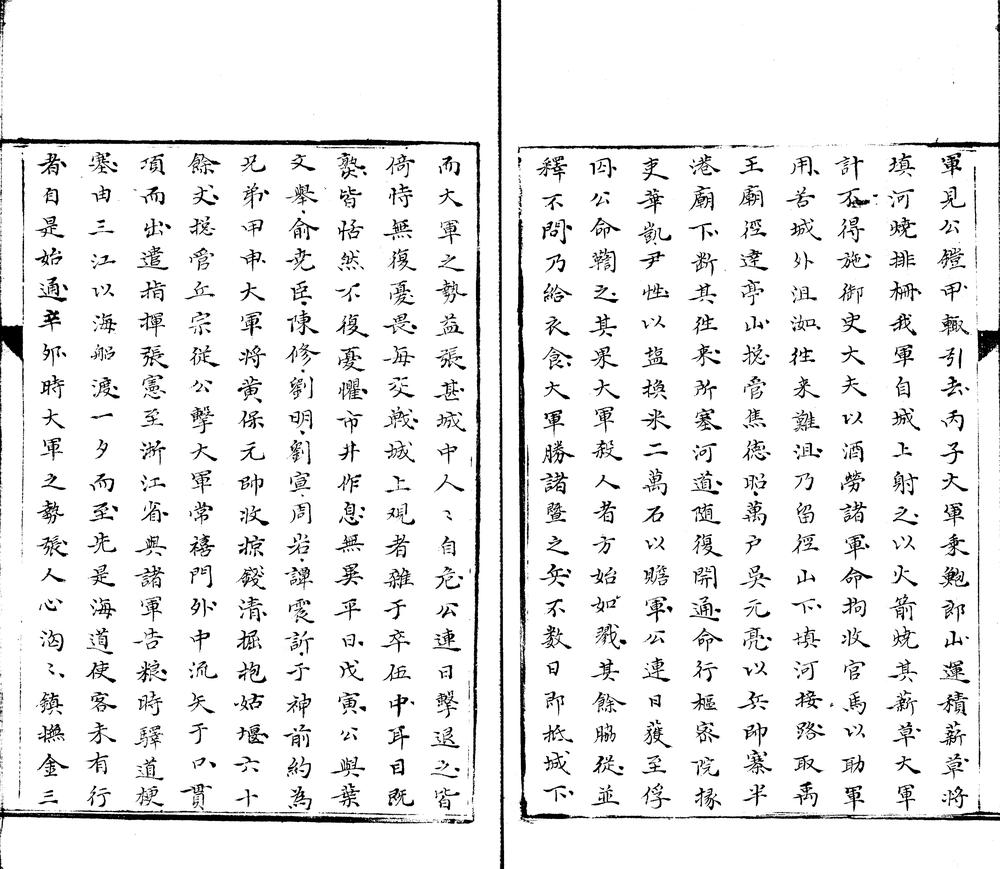 軍見公鎧甲輒引去丙子大軍乘鮑郎山運積薪草將
填河燒排柵我軍自城上射之以火箭燒其薪草大軍
計不得施御史大夫以酒勞諸軍命拘收官馬以助軍
用苦城外沮洳徃来難沮乃留徑山下填河接路取禹
王廟徑達亭山捴管焦德昭萬户吳元亮以兵帥寨半
港廟下斷其徃来所塞河道随復開通命行樞宻院掾
吏華凱尹性以塩換米二萬石以贍軍公連日獲至俘
囚公命鞫之其果大軍殺人者方始如戮其餘脇從並
釋不問乃給衣食大軍勝諸暨之兵不数日即抵城下
而大軍之勢益張甚城中人〻自危公連日擊退之皆
倚恃無復憂畏每交戰城上观者雜于卒伍中耳目既
熟皆恬然不復憂懼市井作息無異平日戊寅公與葉
文舉俞堯臣陳修劉明劉宣周岩譚震訢于神前約為
兄弟甲申大軍将黄保元帥收掠錢清掘抱姑堰六十
餘丈捴管丘宗従公擊大軍常禧門外中流矢于口貫
項而出遣指揮張憲至浙江省與諸軍告粮時驛道梗
塞由三江以海船渡一夕而至先是海道使客未有行
者自是始通辛夘時大軍之勢張人心洶〻鎮撫金三